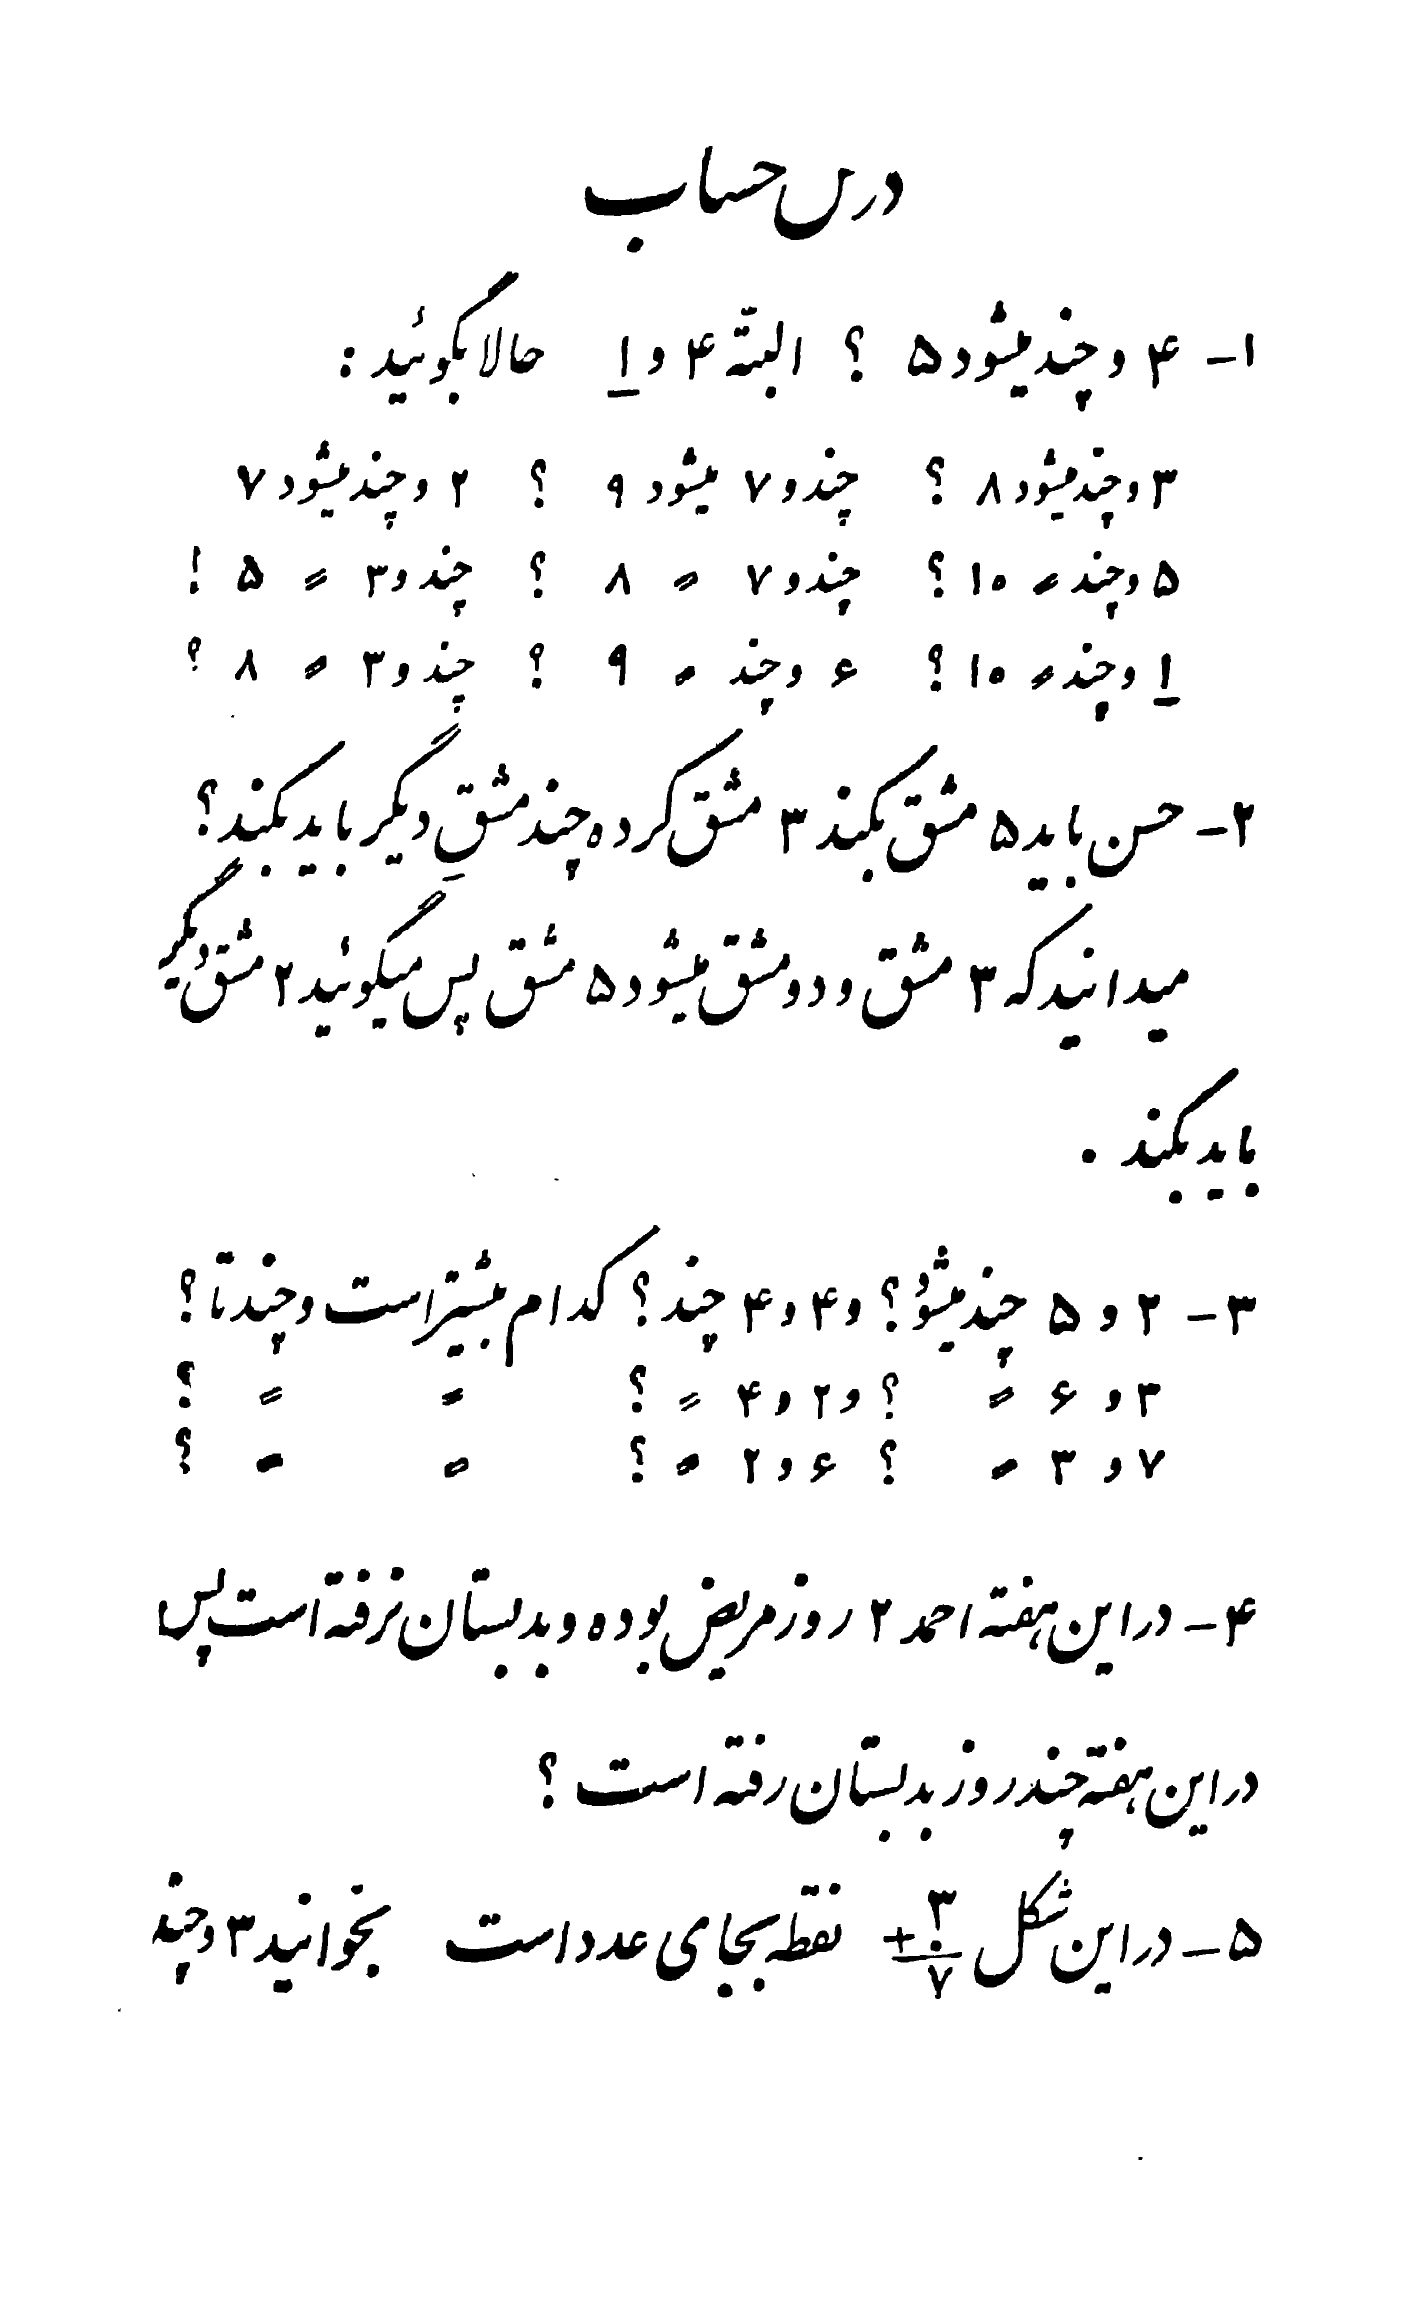 درس حساب
۱- ۴ و چند میشود ۵ ؟ البتّه ۴ و ۱ حالا بگوئید :
۳ و چند میشود ۸ ؟ چند و ۷ میشود ۹ ؟ ۲ و چند میشود ۷
۵ و چند = ۱۰ ؟ چند و ۷ = ۸ ؟ چند و ۳ = ۵ !
۱ و چند = ۱۰ ؟ ۶ و چند = ۹ ؟ چند و ۳ = ۸ ؟
۲- حسن باید ۵ مشق بکند ۳ مشق کرده چند مشقِ دیگر باید بکند ؟
میدانید که ۳ مشق و دو مشق میشود ۵ مشق پس میگوئید ۲ مشق دیگر
باید بکند .
۳- ۲ و ۵ چند میشود ؟ و ۴ و ۴ چند ؟ کدام بیشتر است و چند تا ؟
۳ و ۶ = ؟ و ۲ و ۴ = ؟ = = ؟
۷ و ۳ = ؟ ۶ و ۲ = ؟ = = ؟
۴- در این هفته احمد ۲ روز مریض بوده و بدبستان نرفته است پس
در این هفته چند روز بدبستان رفته است ؟
۵- در این شکل ۳ + . ۷ نقطه بجای عدد است بخوانید ۳ و چند